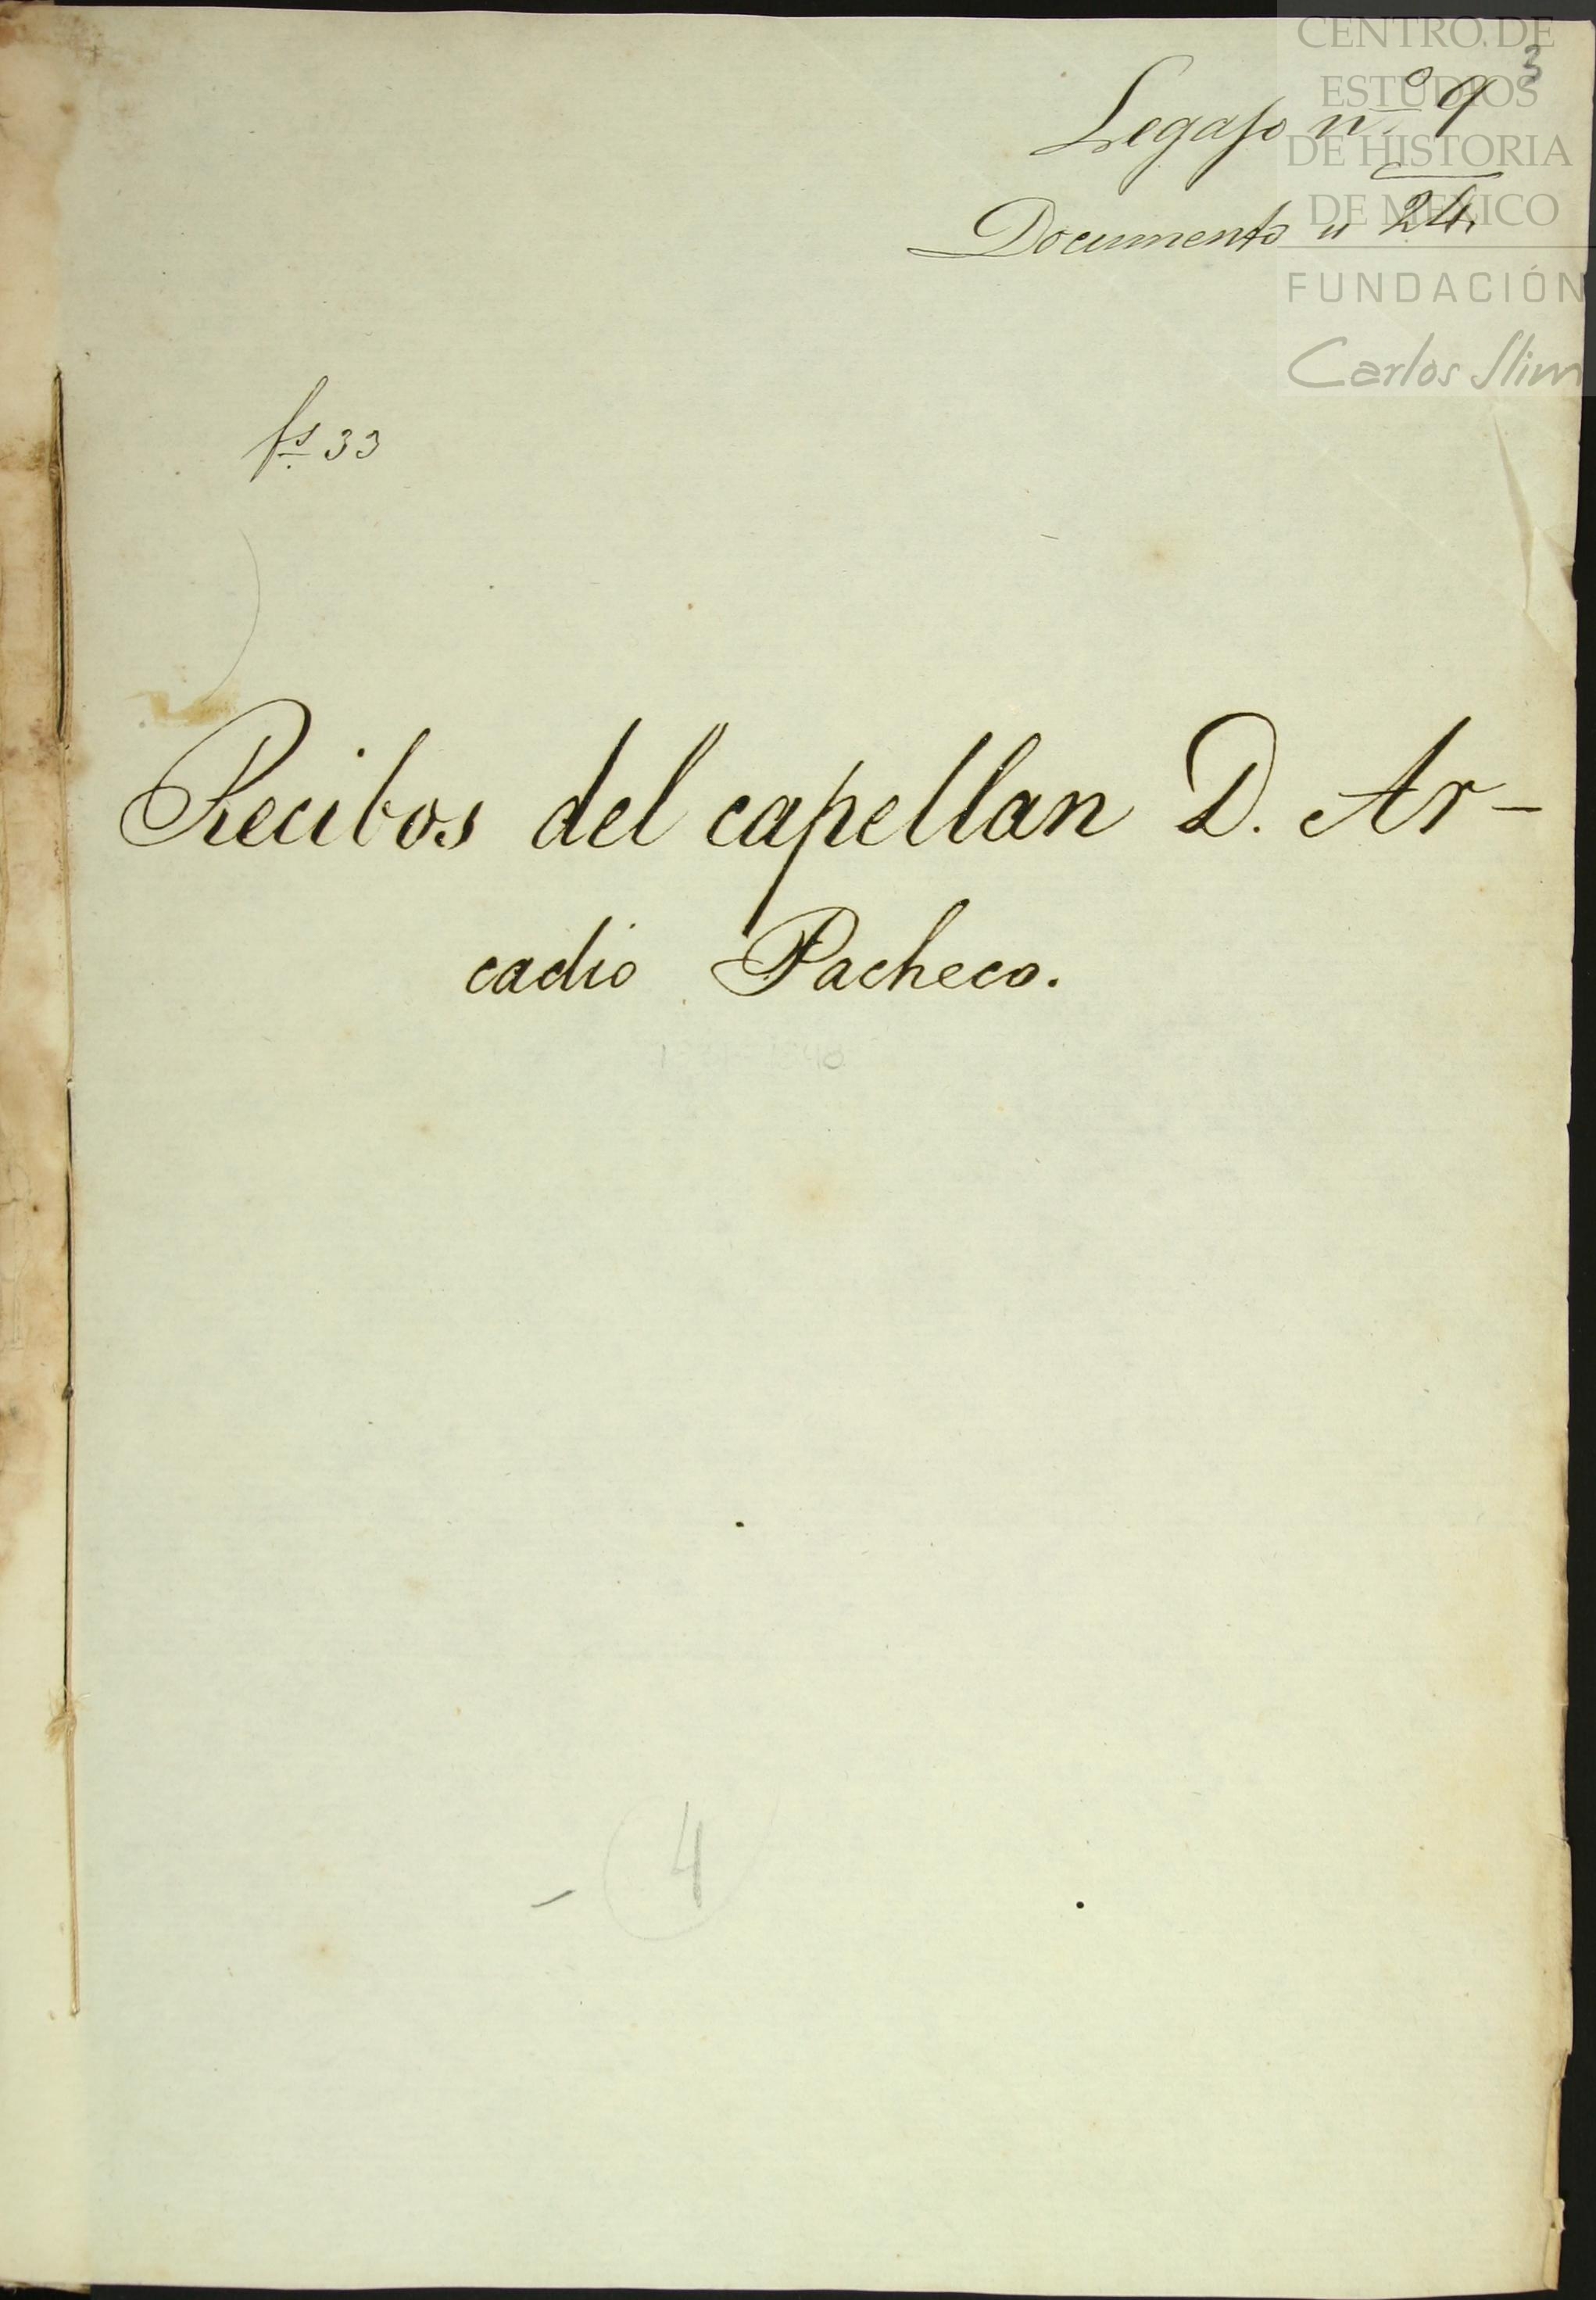 CENTRO DE
ESTUDIOS
DE HISTORIA
DE MEXICO
FUNDACIÓN
Carlos Slim
3
Legajo nº 9
Documento " 24.
fs 33
Recibos del capellan D. Ar-
cadio Pacheco.
4